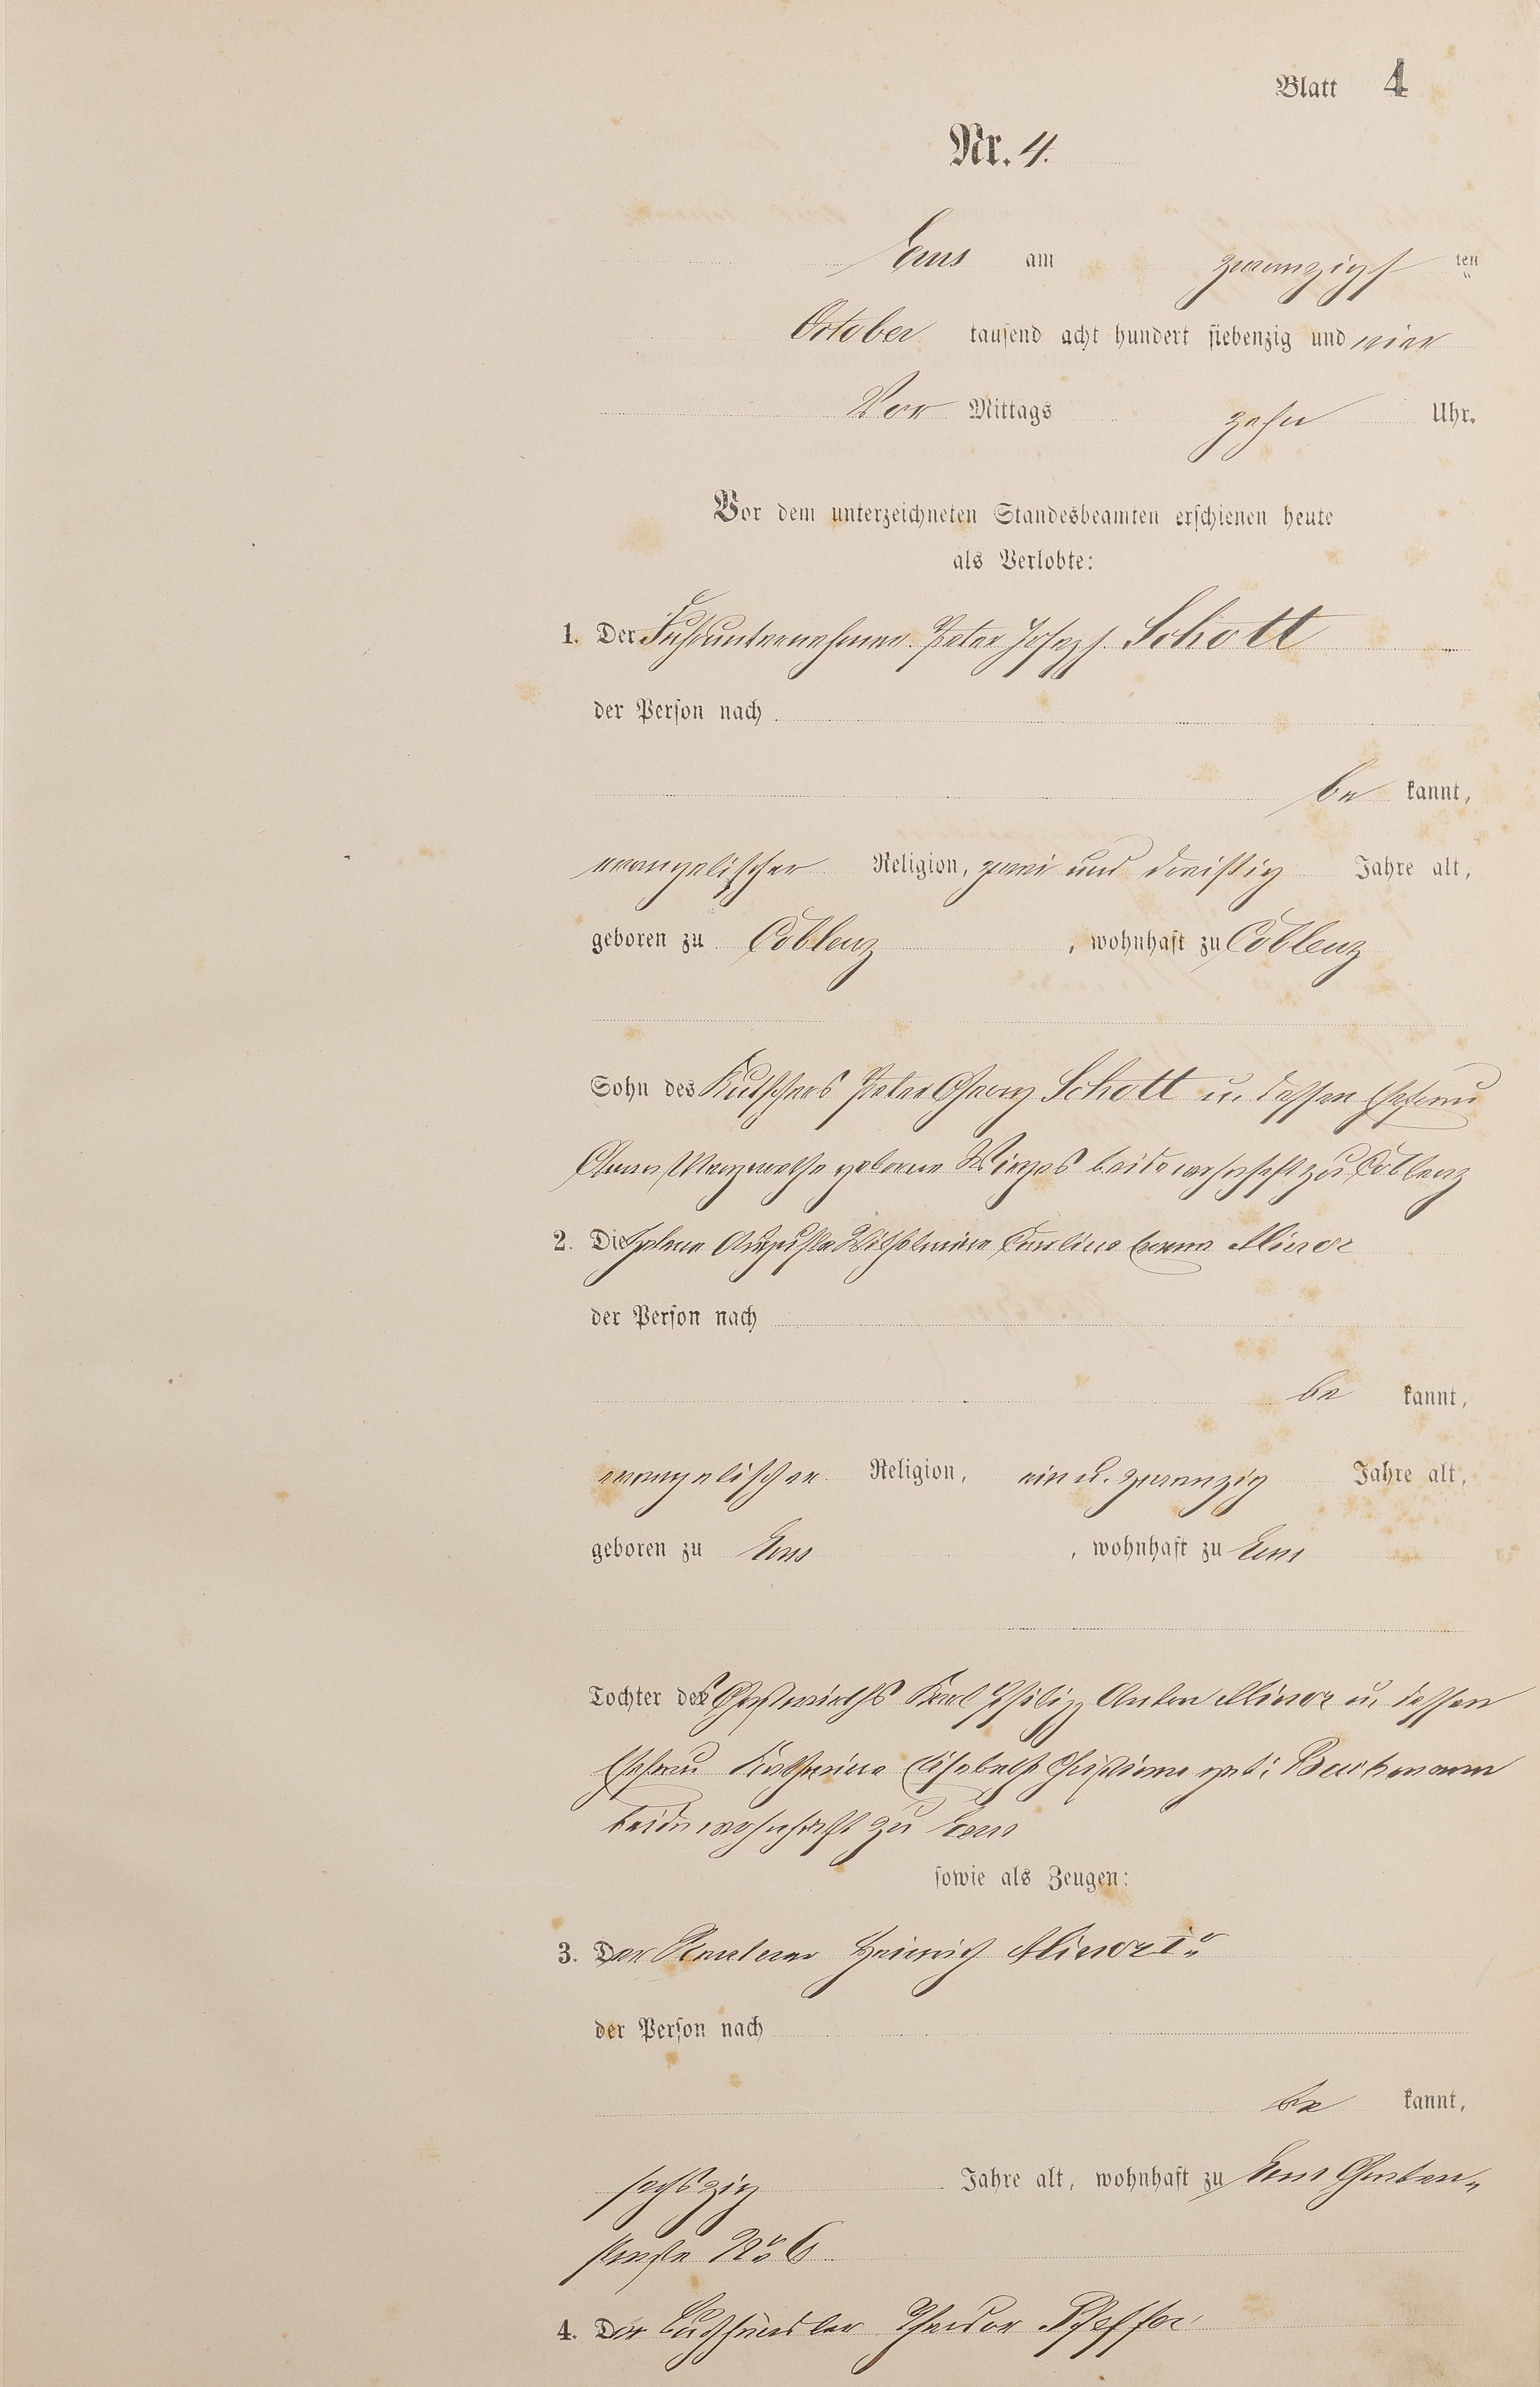 Blatt 4
Nr. 4.
Ems am zwanzigsten
October tausend acht hundert siebenzig und vier
Vor Mittags zehn Uhr.
Vor dem unterzeichneten Standesbeamten erschienen heute
als Verlobte:
1. Der Fuhrunternehmer Peter Joseph Schott
der Person nach
be kannt,
evangelischer Religion, zwei und dreißig Jahre alt,
geboren zu Coblenz, wohnhaft zu Coblenz
Sohn des Kutschers Peter Schott u. dessen Ehefrau
Anna Margarethe geborne beide wohnhaft zu Coblenz
2. Die Helene Auguste Wilhelmine Karoline Emma Minor
der Person nach
be kannt,
evangelischer Religion, ein u. zwanzig Jahre alt,
geboren zu Ems, wohnhaft zu Ems
Tochter des Gastwirths Karl Philipp Anton Minor u. dessen
Ehefrau Katharine Elisabeth Christiane geb: Bachmann
beide wohnhaft zu Ems
sowie als Zeugen:
3. Der Rentner Heinrich Minor Ir
der Person nach
be kannt,
sechszig Jahre alt, wohnhaft zu Ems Graben„
straße No 6
4. Der Theodor Pfeffer